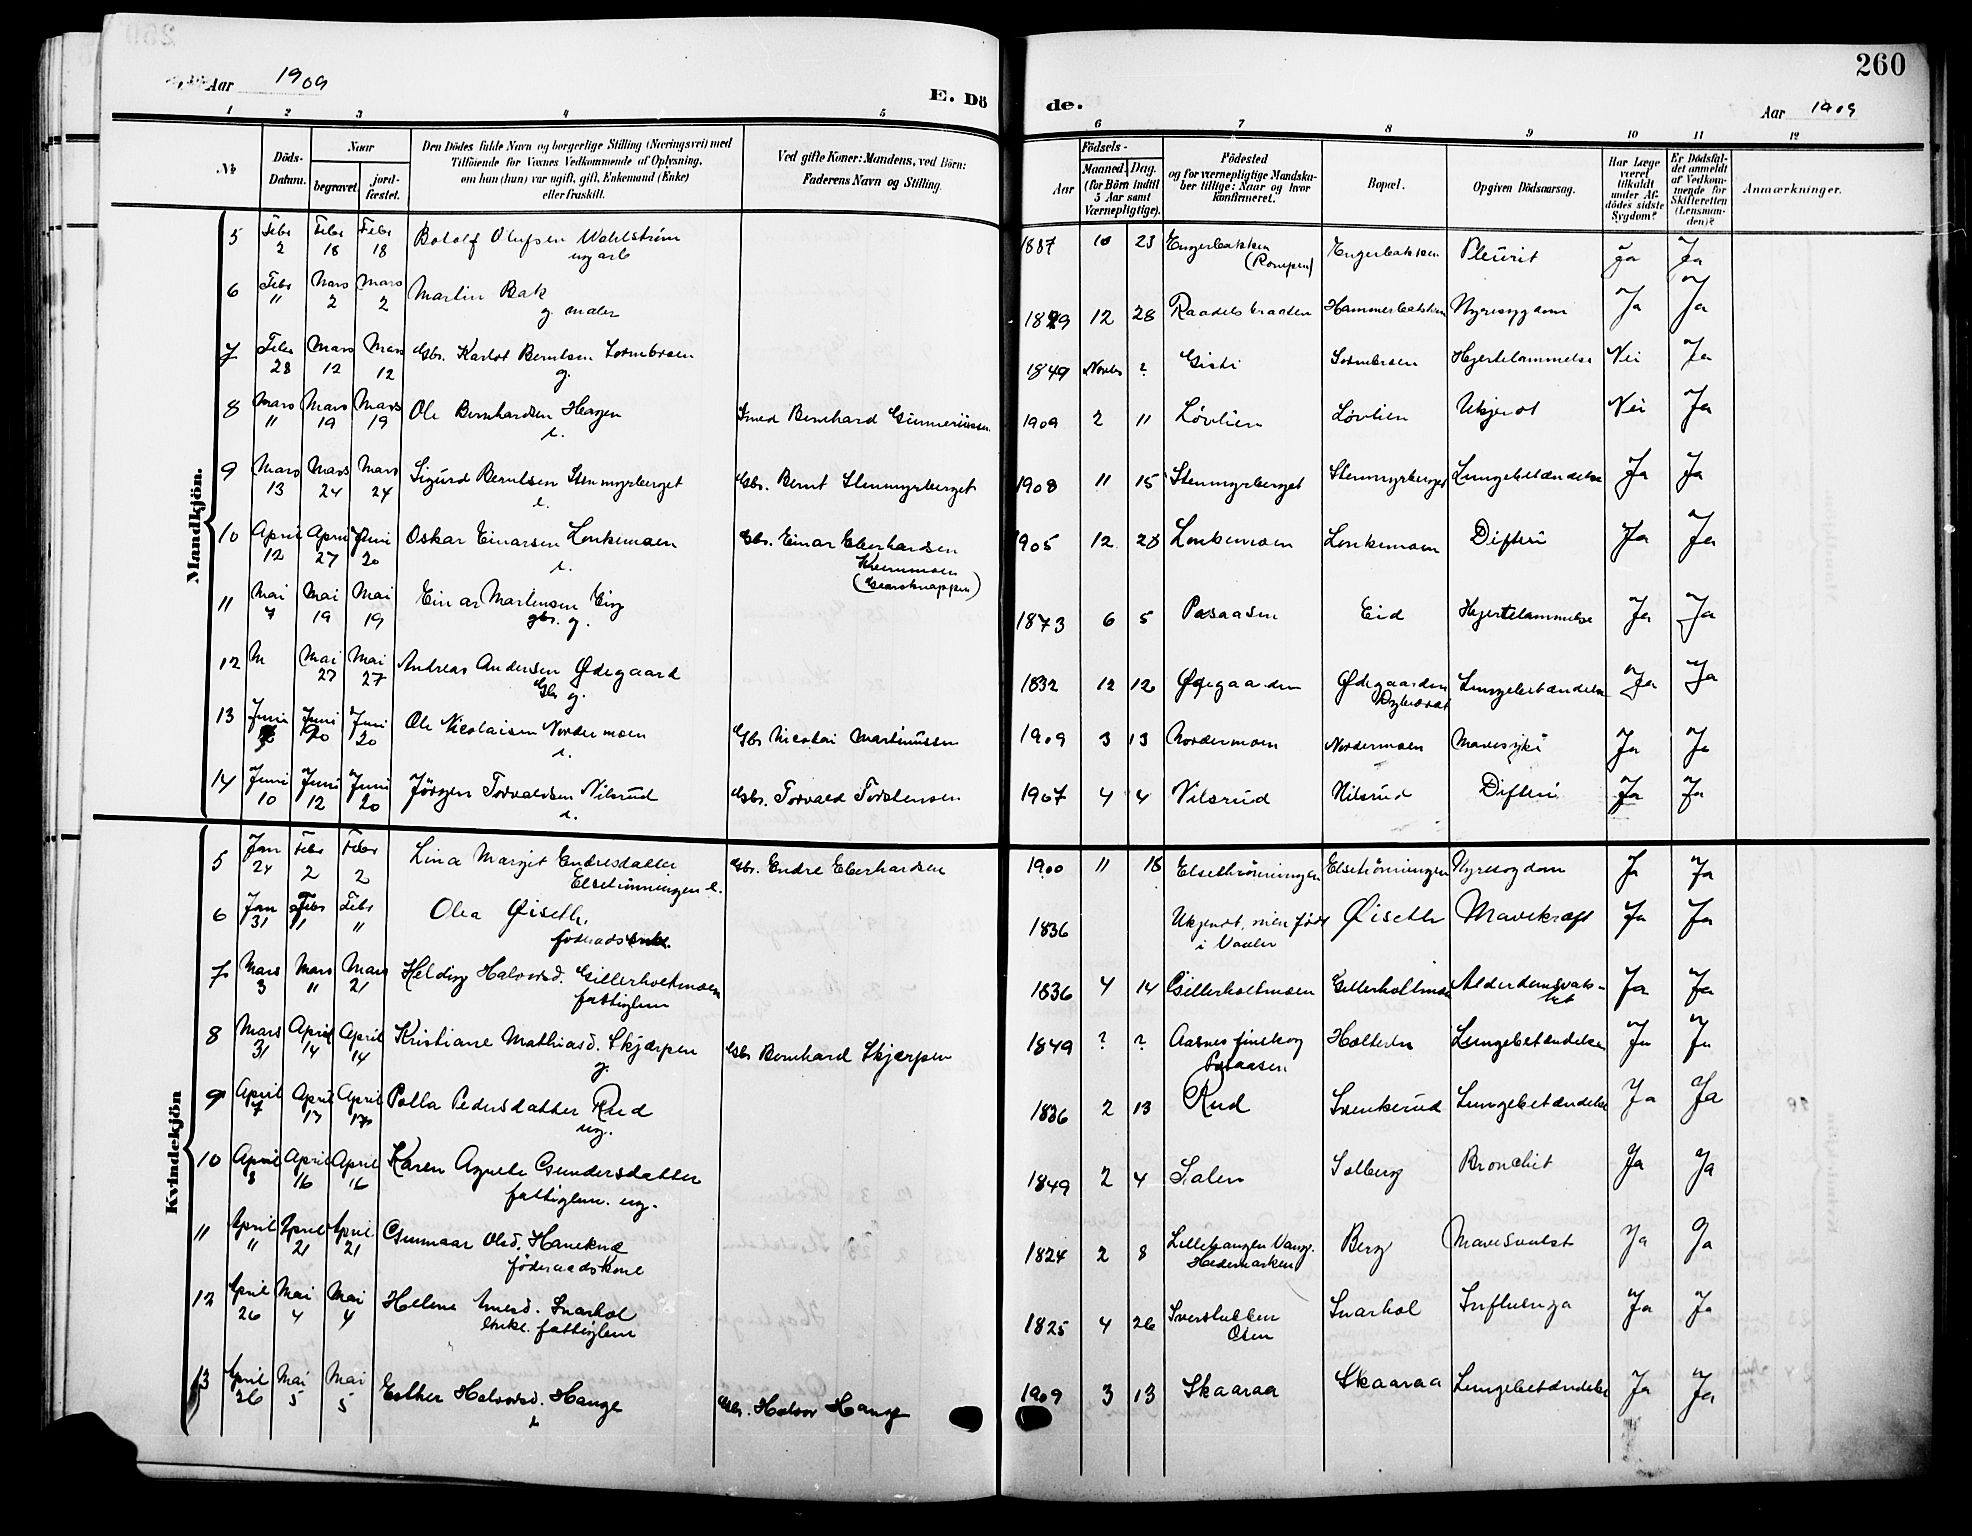 260
Aar 1909
E. Dö
de.
Aar 1909
1 2 3 4 5 6 7 8 9 10 11 12
No
Döds-Datum.
Naar
begravet.
jord-fæstet.
Den Dödes fulde Navn og borgerlige Stilling (Næringsvei) med
Tilföiende for Voxnes Vedkommende af Oplysning,
om han (hun) var ugift, gift, Enkemand (Enke)
eller fraskilt.
Ved gifte Koner: Mandens, ved Börn:
Faderens Navn og Stilling.
Födsels-
Aar
Maaned. Dag.
(for Börn indtil
5 Aar samt
Værnepligtige).
Födested
og for værnepligtige Mandska-
ber tillige: Naar og hvor
konfirmeret.
Bopæl.
Opgiven Dödsaarsag.
Har Læge
været
tilkaldt
under Af-
dödes sidste
Sygdom?
Er Dödsfal-
det anmeldt
af Vedkom-
mende for
Skifteretten
(Lensman-
den)?
Anmærkninger.
Mandkjön.
5 Febr 2 Febr 18 Febr 18 Botolf Olufsen Wahlström 1887 10 23 Engerbakken Engerbakken Pleurit Ja Ja
ug arb (Rompen)
6 Febr 11 Mars 2 Mars 2 Martin Bak 12 28 Nyresygdom Ja Ja
g. maler
7 Febr 28 Mars 12 Mars 12 Gbr. Karlot Berntsen Sormbroen 1849 Novbr ? Gisti Sormbroen Hjertelammelse Nei Ja
g.
8 Mars 11 Mars 19 Mars 19 Ole Bernhardsen Haugen Smed Bernhard Gunneriussen 1909 2 11 Løvlien Løvlien Ukjendt Nei Ja
9 Mars 13 Mars 24 Mars 24 Sigurd Berntsen Stenmyrberget Gbr. Bernt Stenmyrberget 1908 11 15 Stenmyrberget Stenmyrberget Lungebetændelse Ja Ja
10 April 12 April 27 Juni 20 Oskar Einarsen Lonkemoen Gbr. Einar Eberhardsen 1905 12 28 Lonkemoen Lonkemoen Difteri Ja Ja
11 Mai 7 Mai 19 Mai 19 Einar Martensen Eid 1873 6 5 Pasaasen Eid Hjertelammelse Ja Ja
gbr. g.
12 M Mai 27 Mai 27 Andreas Andersen Ødegaard 1832 12 12 Ødegaarden Ødegaarden Lungebetændelse Ja Ja
Gbr g.
13 Juni Juni 20 Juni 20 Ole Nicolaisen Nordermoen Gbr Nicolai Martinussen 1909 3 13 Nordermoen Nordermoen Mavesyke Ja Ja
14 Juni 10 Juni 12 Juni 20 Jörgen Torvaldsen Nilsrud Gbr. Torvald Torstensen 1907 4 4 Nilsrud Nilsrud Difteri Ja Ja
Kvindekjön
5 Jan 24 Febr 2 Febr 2 Lina Margit Endresdatter Gbr. Endre Eberhardsen 1900 11 18 Elsethrönningen Elsetrönningen Nyresygdom Ja Ja
Elsetrönningen
6 Jan 31 Febr 11 Febr 11 Olea Øiseth 1836 Ukjendt, men født Øiseth Mavekræft Ja Ja
föderaadsenke. i Vaaler
7 Mars 3 Mars 11 Mars 21 Helding Halvorsd. Gillerholtmoen 1836 4 14 Gillerholtmoen Gillerholtmoen Alderdomsvak-
fattiglem het Ja Ja
8 Mars 31 April 14 April 14 Kristiane Mathiasd. Skjærpen Gbr Bernhard Skjærpen 1849 ? ? Aasnes finskog Holteren Lungebetændelse Ja Ja
g. Pasaasen
9 April 7 April 17 April 17 Polla Pedersdatter Rud 1836 2 13 Rud Svenkerud Lungebetændelse Ja Ja
ug.
10 April 8 April 16 April 16 Karen Agnete Gundersdatter 1849 2 4 Solberg Bronchit Ja Ja
fattiglem. ug.
11 April 11 April 21 April 21 Gunnaar Olsd. Haneknæ 1824 2 8 Lillehaugen Vang. Berg Mavesvulst Ja Ja
föderaadskone Hedemarken
12 April 26 Mai 4 Mai 4 Hellene Snarhol 1825 4 26 Snarhol Influenza Ja Ja
Enke. fattiglem Osen
13 April 26 Mai 5 Mai 5 Esther Halvorsd. Hauge Gbr. Halvor Hauge 1909 3 13 Skaaraa Skaaraa Lungebetændelse Ja Ja